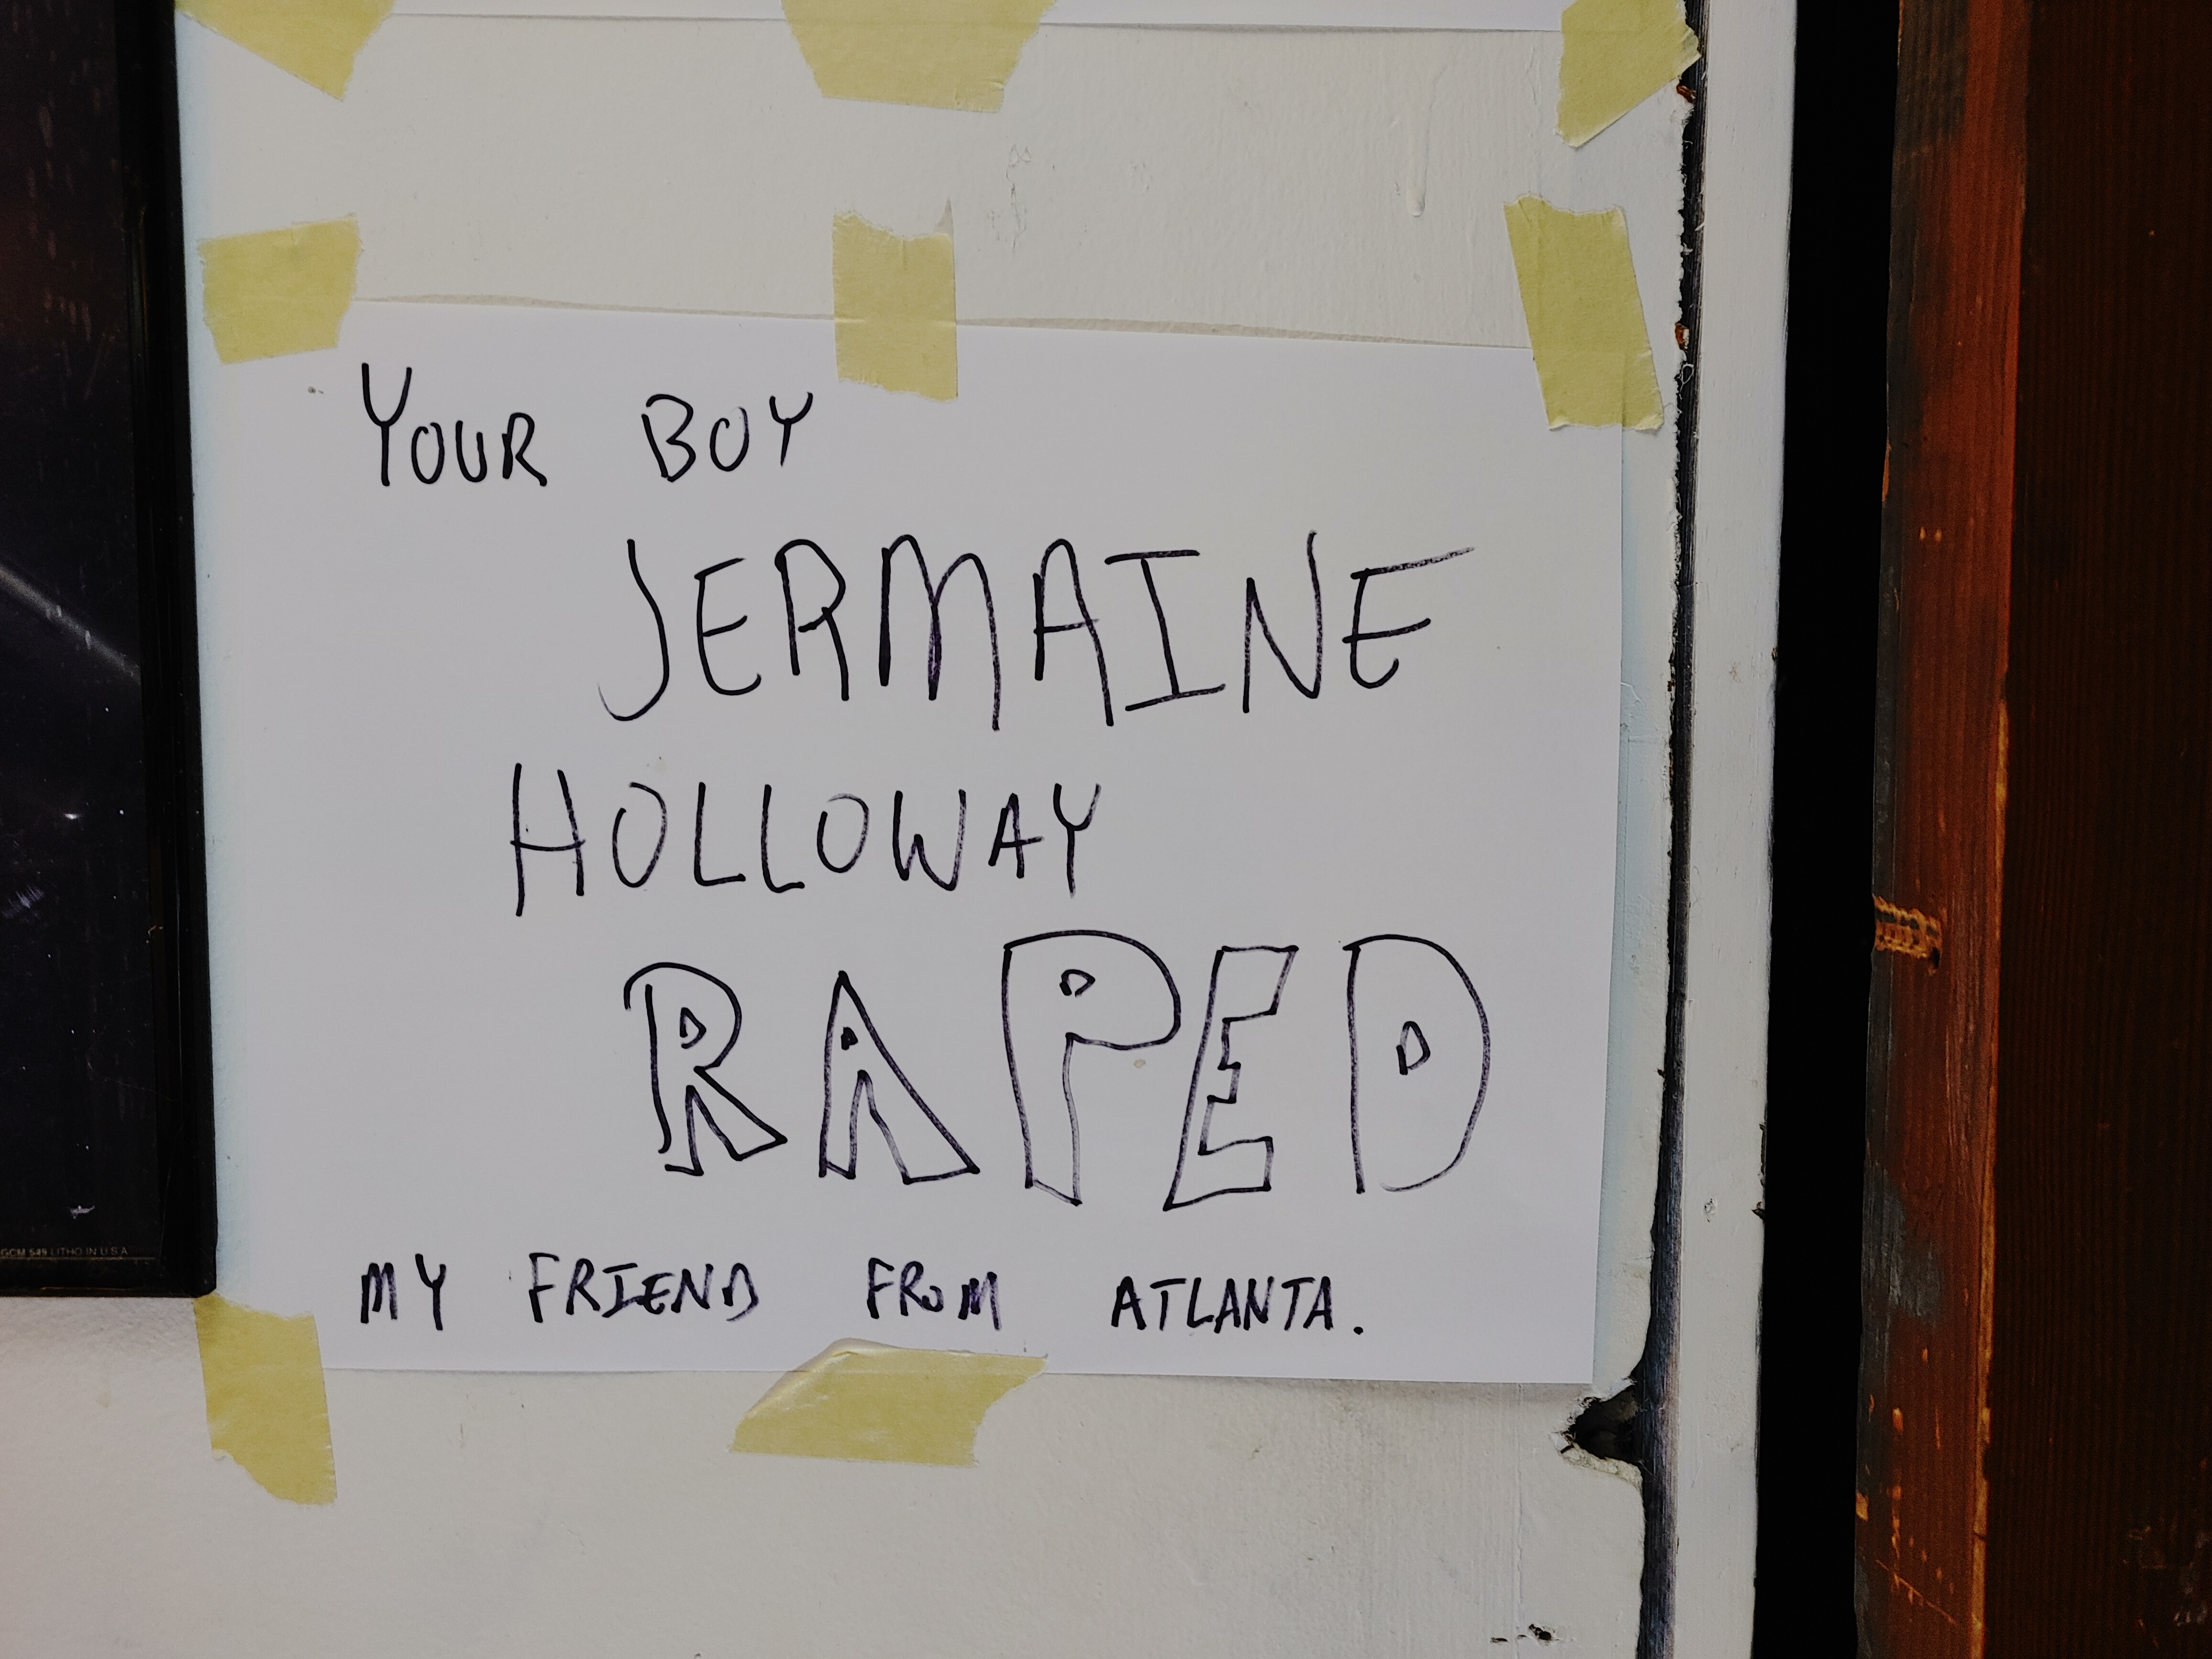 YOUR BOY
JERMAINE
HOLLOWAY
RAPED
MY FRIEND FROM ATLANTA.
GCM 549 LITHO IN U.S.A